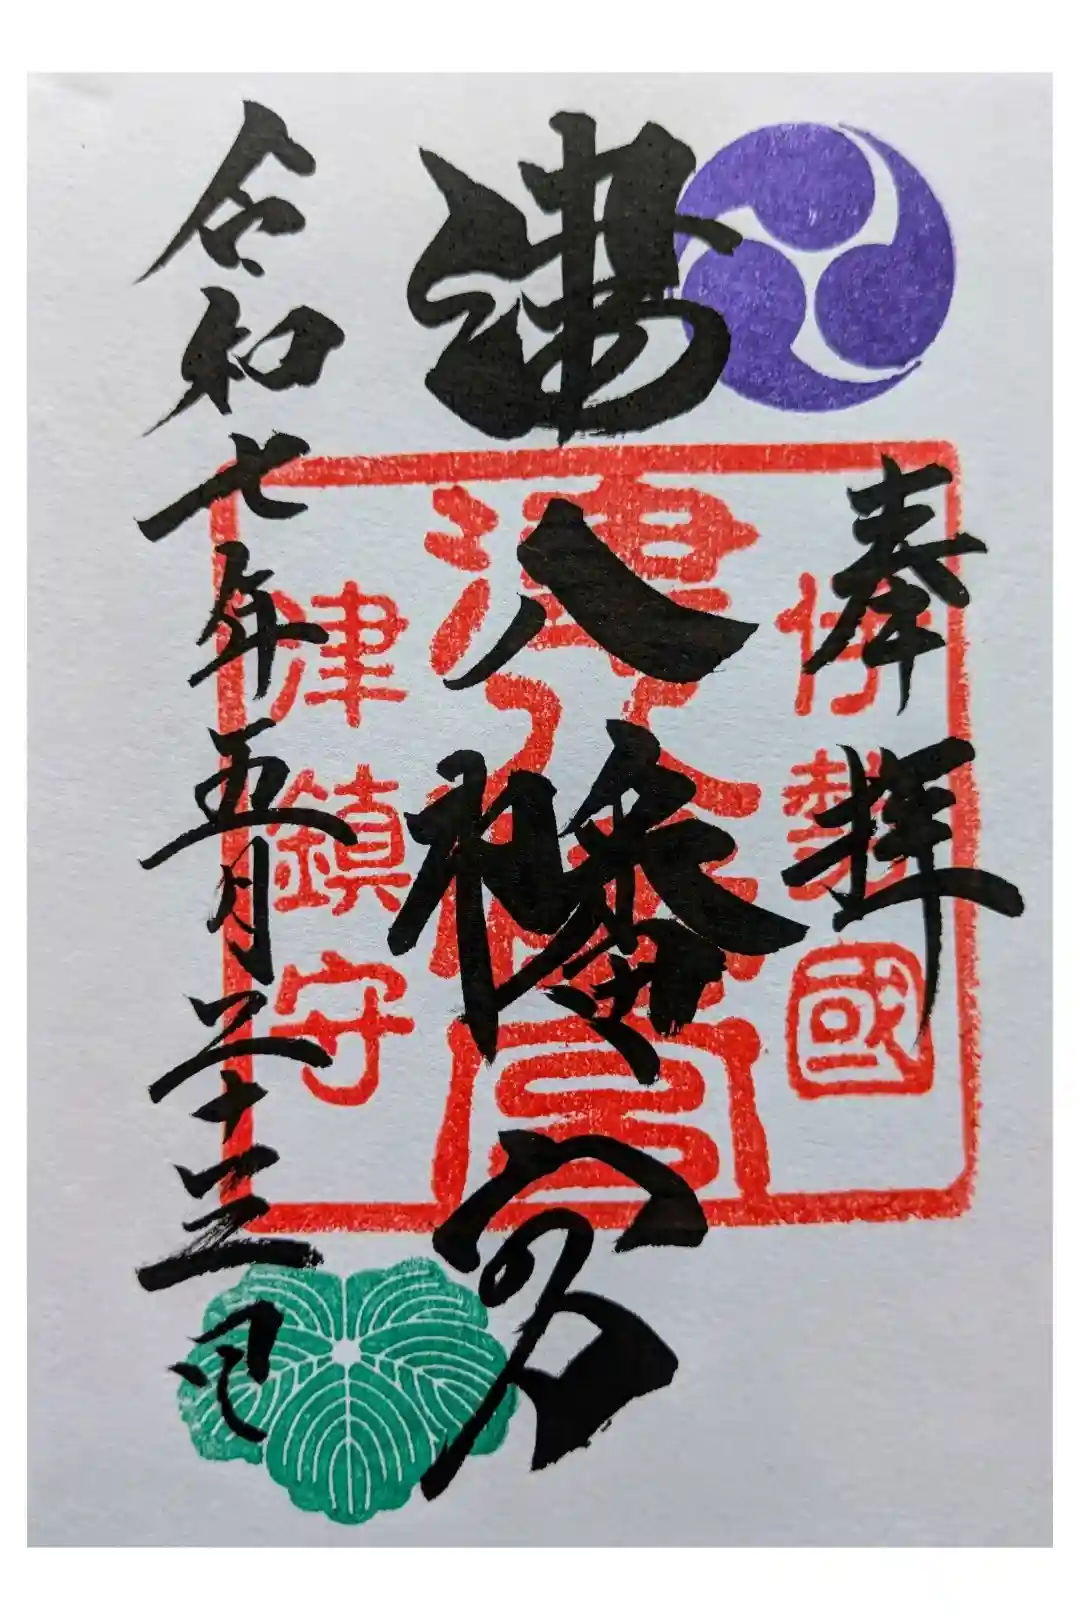 奉拝
津八幡宮
令和七年五月二十三日
伊勢國
津八幡宮
津鎮守